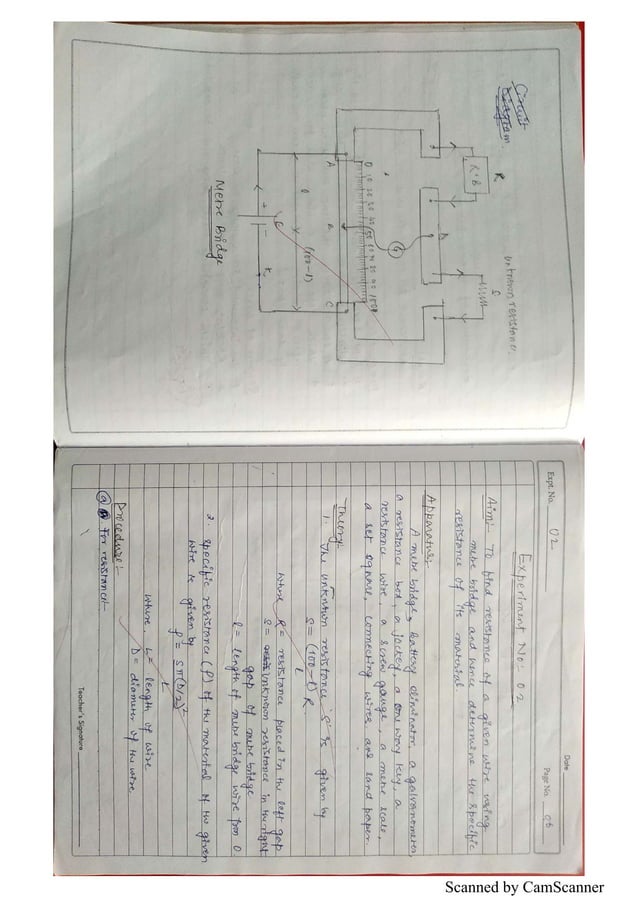 Circuit
Diagram.
R
R.B
unknown resistance
S
B
G
0 10 20 30 40 50 60 70 80 90 100
A
C
l
(100-l)
E
+ -
K
Metre Bridge
Expt. No. 02
Date
Page No. 06
Experiment No:- 02
Aim:- To find resistance of a given wire using
metre bridge and hence determine the specific
resistance of its material.
Apparatus:-
A metre bridge, battery eliminator, a galvanometer,
a resistance box, a jockey, a one way key, a
resistance wire, a screw gauge, a metre scale,
a set square, connecting wires and sand paper.
Theory:-
1. The unknown resistance 'S' is given by
S = (100-l) R
l
where R = resistance placed in the left gap
S = unknown resistance in the right
gap of metre bridge
l = length of metre bridge wire from 0.
2. Specific resistance (ρ) of the material of the given
wire is given by
ρ = Sπ(D/2)²
L
where, L = length of wire
D = diameter of the wire
Procedure:-
(a) For resistance:-
Teacher's Signature
Scanned by CamScanner